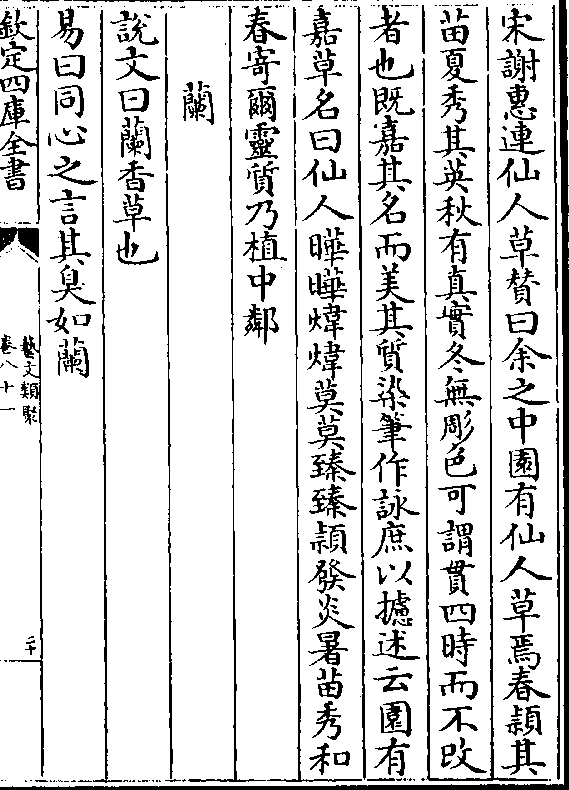 宋謝惠連仙人草賛曰余之中園有仙人草焉春頴其
苗夏秀其英秋有真實冬無彫色可謂貫四時而不改
者也既嘉其名而美其質染筆作詠庶以攄述云園有
嘉草名曰仙人曄曄煒煒莫莫臻臻頴發炎暑苗秀和
春寄爾靈質乃植中鄰
蘭
說文曰蘭香草也
易曰同心之言其臭如蘭
欽定四庫全書
藝文類聚
卷八十一
二十